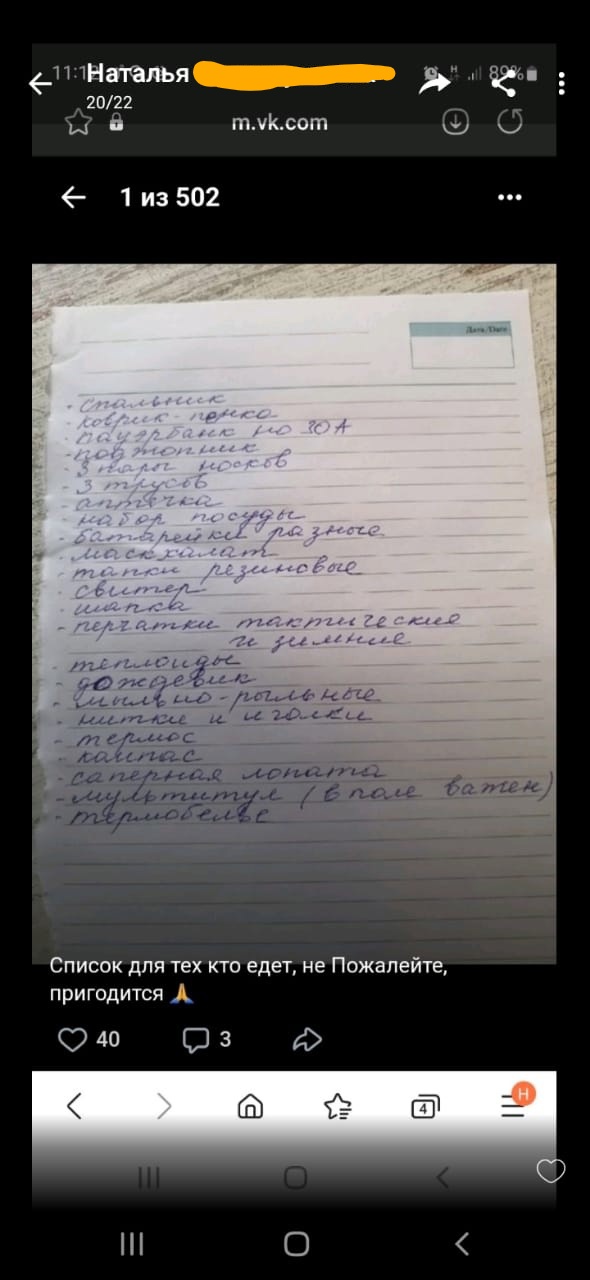 11:1
Наталья
89%
20/22
m.vk.com
1 из 502
Дата/Date
- спальник
- коврик-пенка
- пауэрбанк на 30А
- поджопник
- 3 пары носков
- 3 трусов
- аптечка
- набор посуды
- батарейки разные
- маскхалат
- тапки резиновые
- свитер
- шапка
- перчатки тактические
и зимние
- теплоиды
- дождевик
- мыльно-рыльные
- нитки и иголки
- термос
- компас
- саперная лопата
- мультитул (в поле важен)
- термобелье
Список для тех кто едет, не Пожалейте,
пригодится 🙏
40
3
4
Н